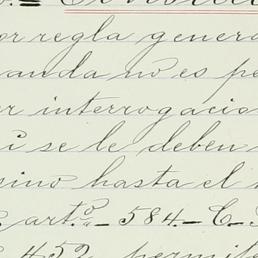 or regla genera
anda no es pe
r interrogacio
i se le deben
sino hasta el
art.º 584.—C—
452 permite